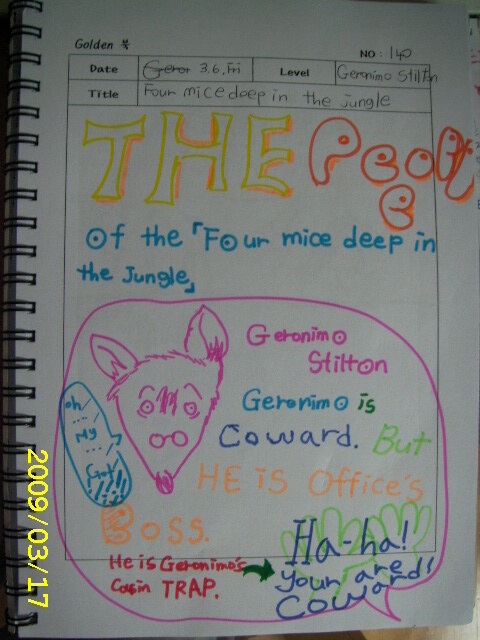 Golden
NO: 140
Date 3.6.Fri Level Geronimo Stilton
Title Four mice deep in the jungle
THE People
of the 「Four mice deep in
the Jungle」
Geronimo
Stilton
oh
...
My
...
Geronimo is
Coward. But
HE is Office's
Boss.
He is Geronimo's
Cosin TRAP.
Ha-ha!
your are
Coward!
2009/03/17